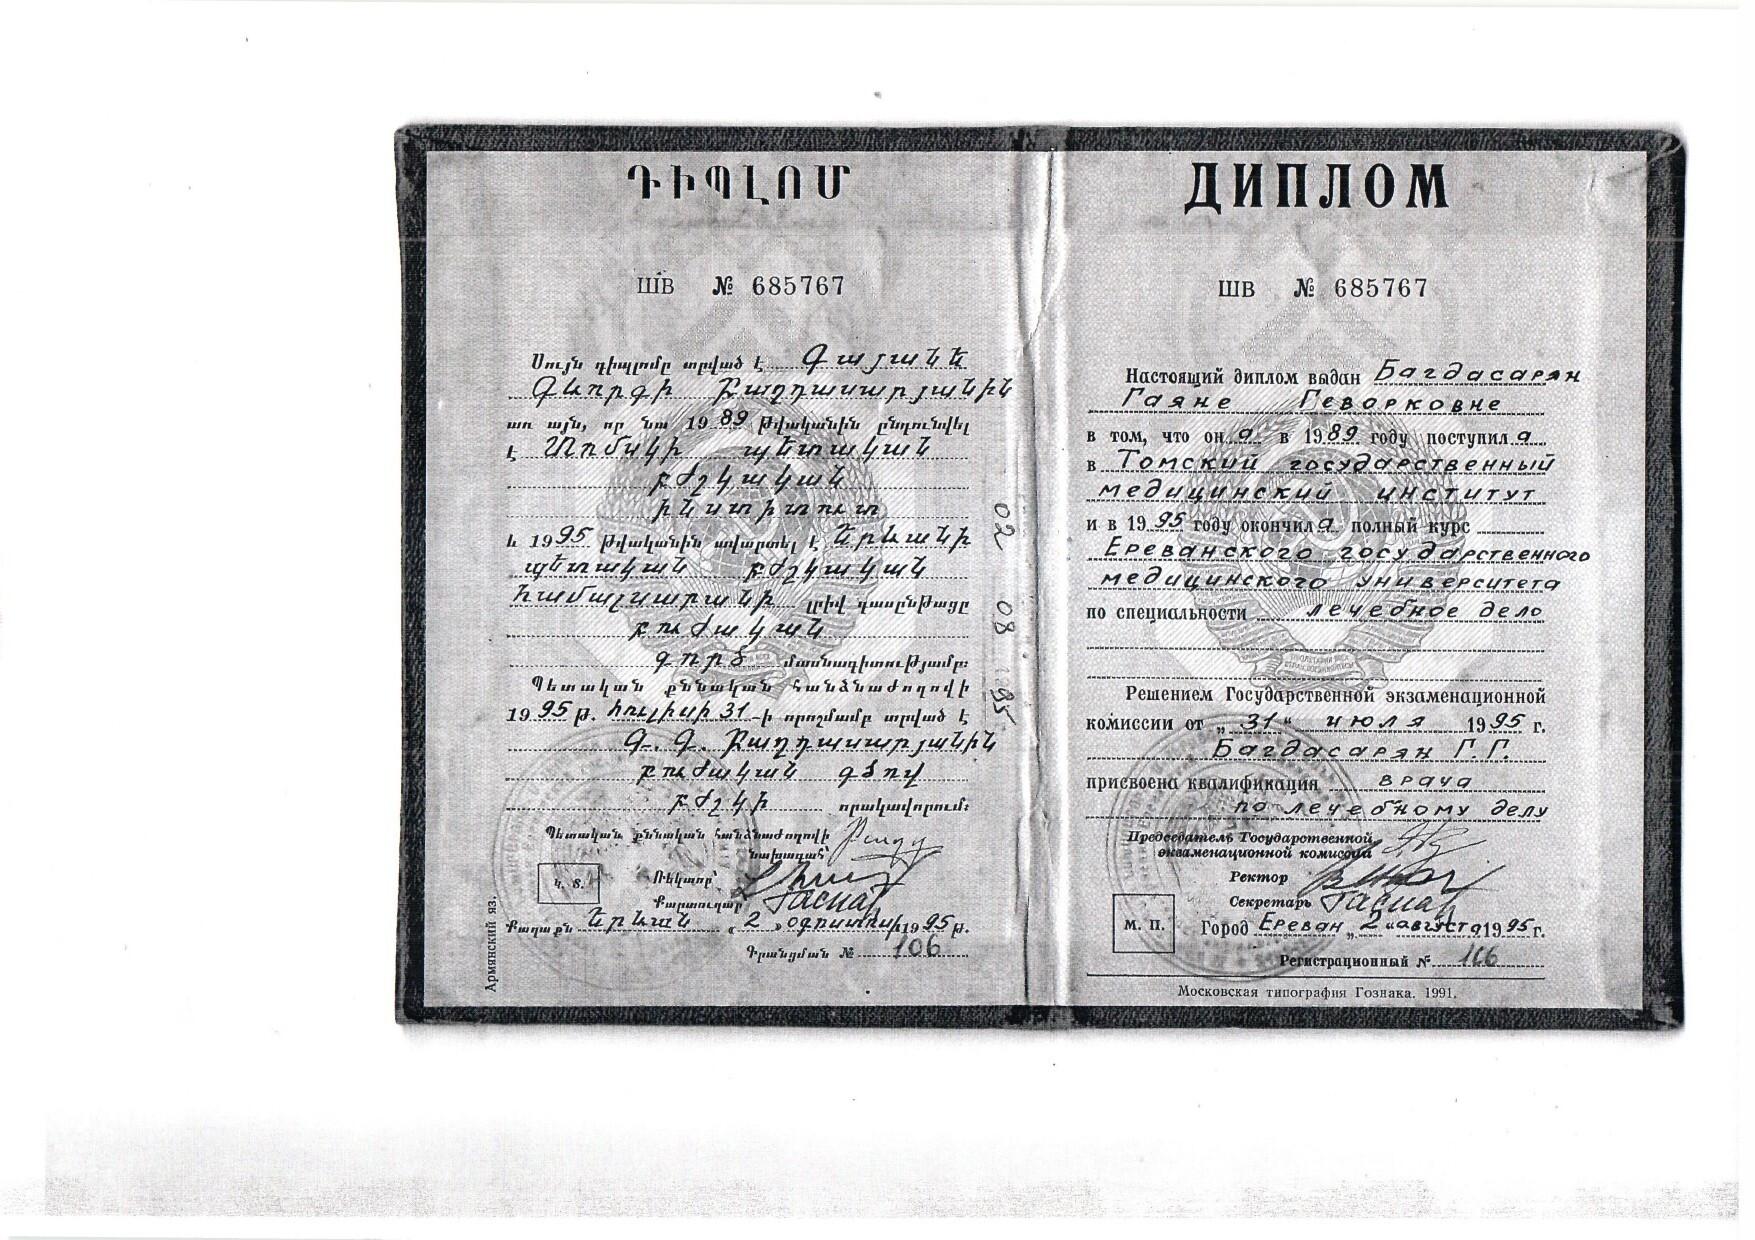 ԴԻՊԼՈՄ
ШВ № 685767
Սույն դիպլոմը տրված է Գայանե
Գևորգի Բաղդասարյանին
առ այն, որ նա 1989 թվականին ընդունվել
է Տոմսկի պետական
բժշկական
ինստիտուտ
և 1995 թվականին ավարտել է Երևանի
պետական բժշկական
համալսարանի լրիվ դասընթացը
բուժական
գործ մասնագիտությամբ։
Պետական քննական հանձնաժողովի
1995 թ. հուլիսի 31-ի որոշմամբ տրված է
Գ. Գ. Բաղդասարյանին
բուժական գծով
բժշկի որակավորում։
Պետական քննական հանձնաժողովի
նախագահ՝
Ռեկտոր՝
Կ. Տ.
Քարտուղար
Քաղաքն Երևան «2» օգոստոսի 1995 թ.
Գրանցման № 106
Армянский яз.
02 08 1995
ДИПЛОМ
ШВ № 685767
Настоящий диплом выдан Багдасарян
Гаяне Геварковне
в том, что он а в 1989 году поступил а
в Томский государственный
медицинский институт
и в 1995 году окончил а полный курс
Ереванского государственного
медицинского университета
по специальности лечебное дело
Решением Государственной экзаменационной
комиссии от „31“ июля 1995 г.
Багдасарян Г.Г.
присвоена квалификация врача
по лечебному делу
Председатель Государственной
экзаменационной комиссии
Ректор
Секретарь
М. П.
Город Ереван „2“ августа 1995 г.
Регистрационный № 106
Московская типография Гознака. 1991.